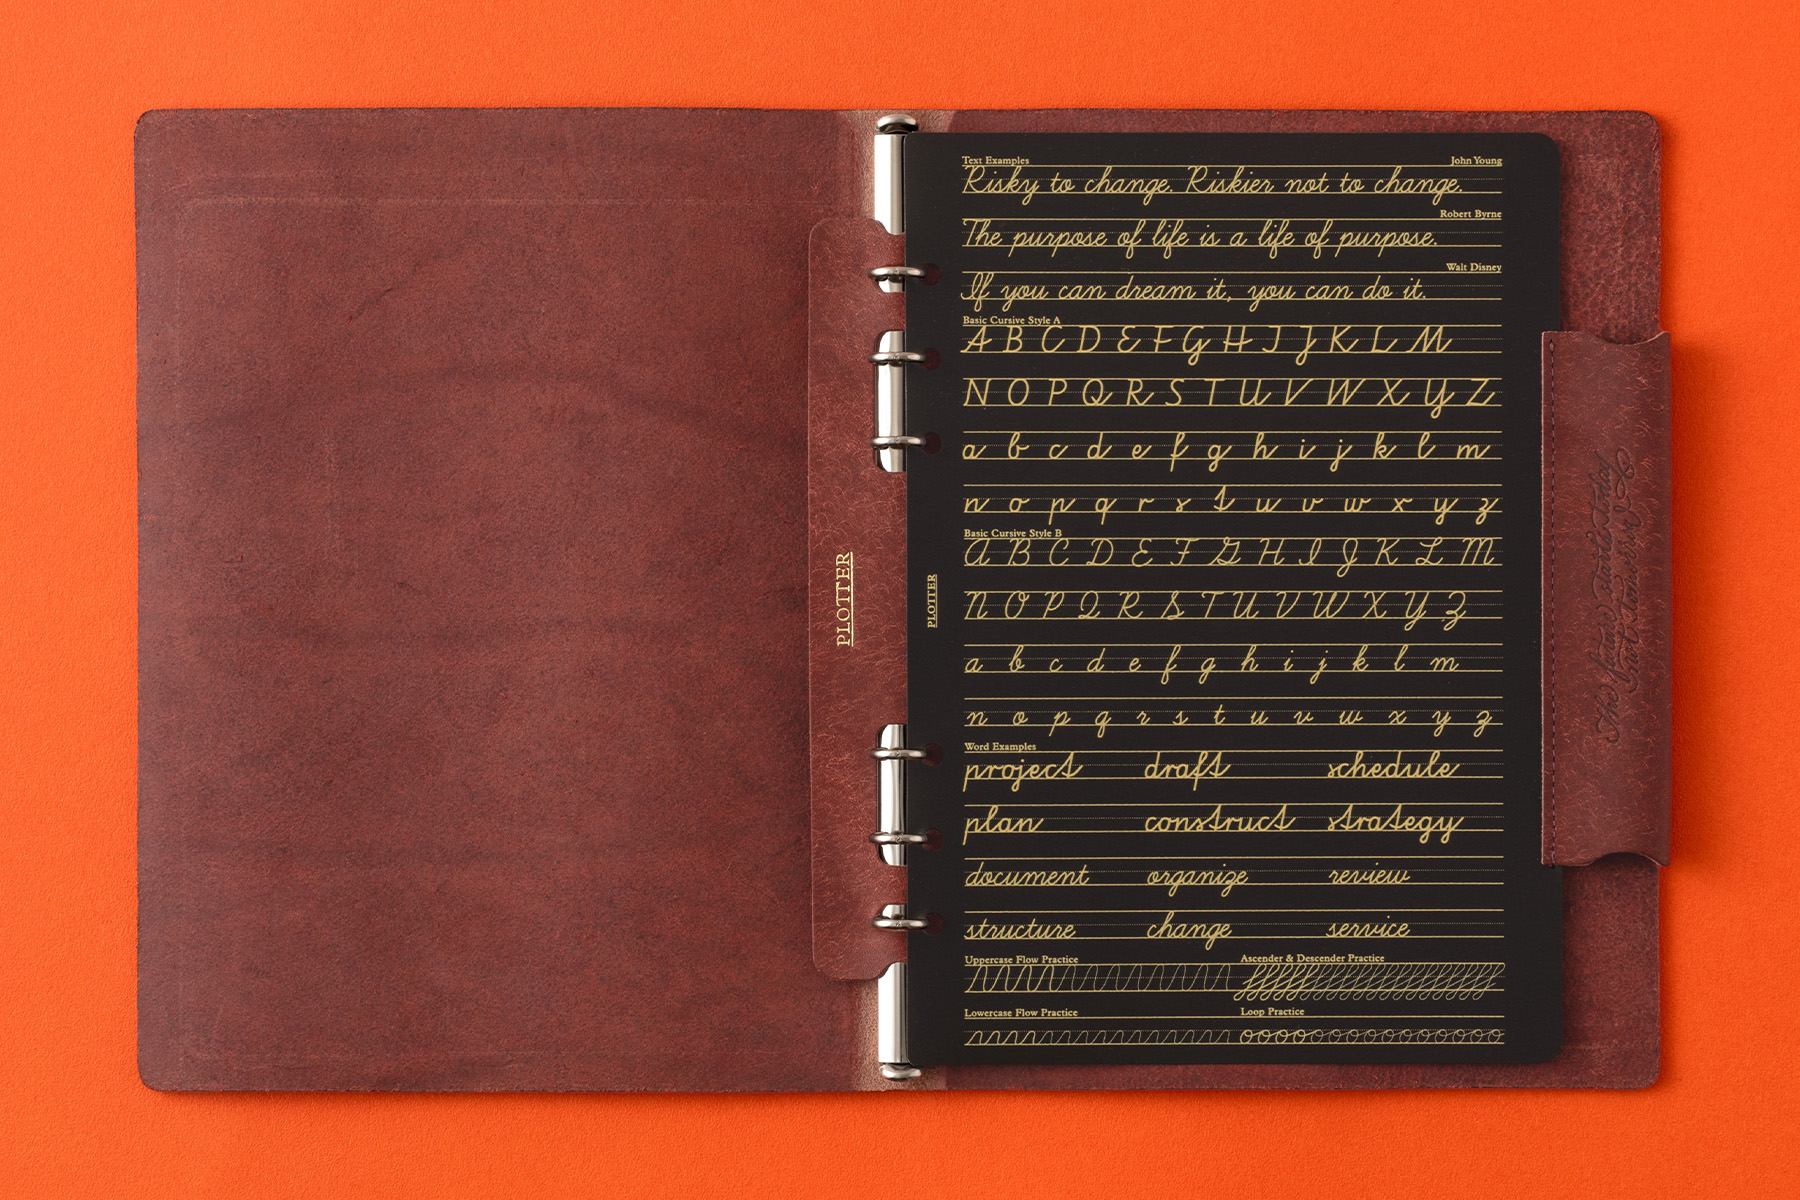 PLOTTER
PLOTTER
Text Examples John Young
Risky to change. Riskier not to change.
Robert Byrne
The purpose of life is a life of purpose.
Walt Disney
If you can dream it, you can do it.
Basic Cursive Style A
A B C D E F G H I J K L M
N O P Q R S T U V W X Y Z
a b c d e f g h i j k l m
n o p q r s t u v w x y z
Basic Cursive Style B
A B C D E F G H I J K L M
N O P Q R S T U V W X Y Z
a b c d e f g h i j k l m
n o p q r s t u v w x y z
Word Examples
project draft schedule
plan construct strategy
document organize review
structure change service
Uppercase Flow Practice Ascender & Descender Practice
Lowercase Flow Practice Loop Practice
The future starts today
not tomorrow